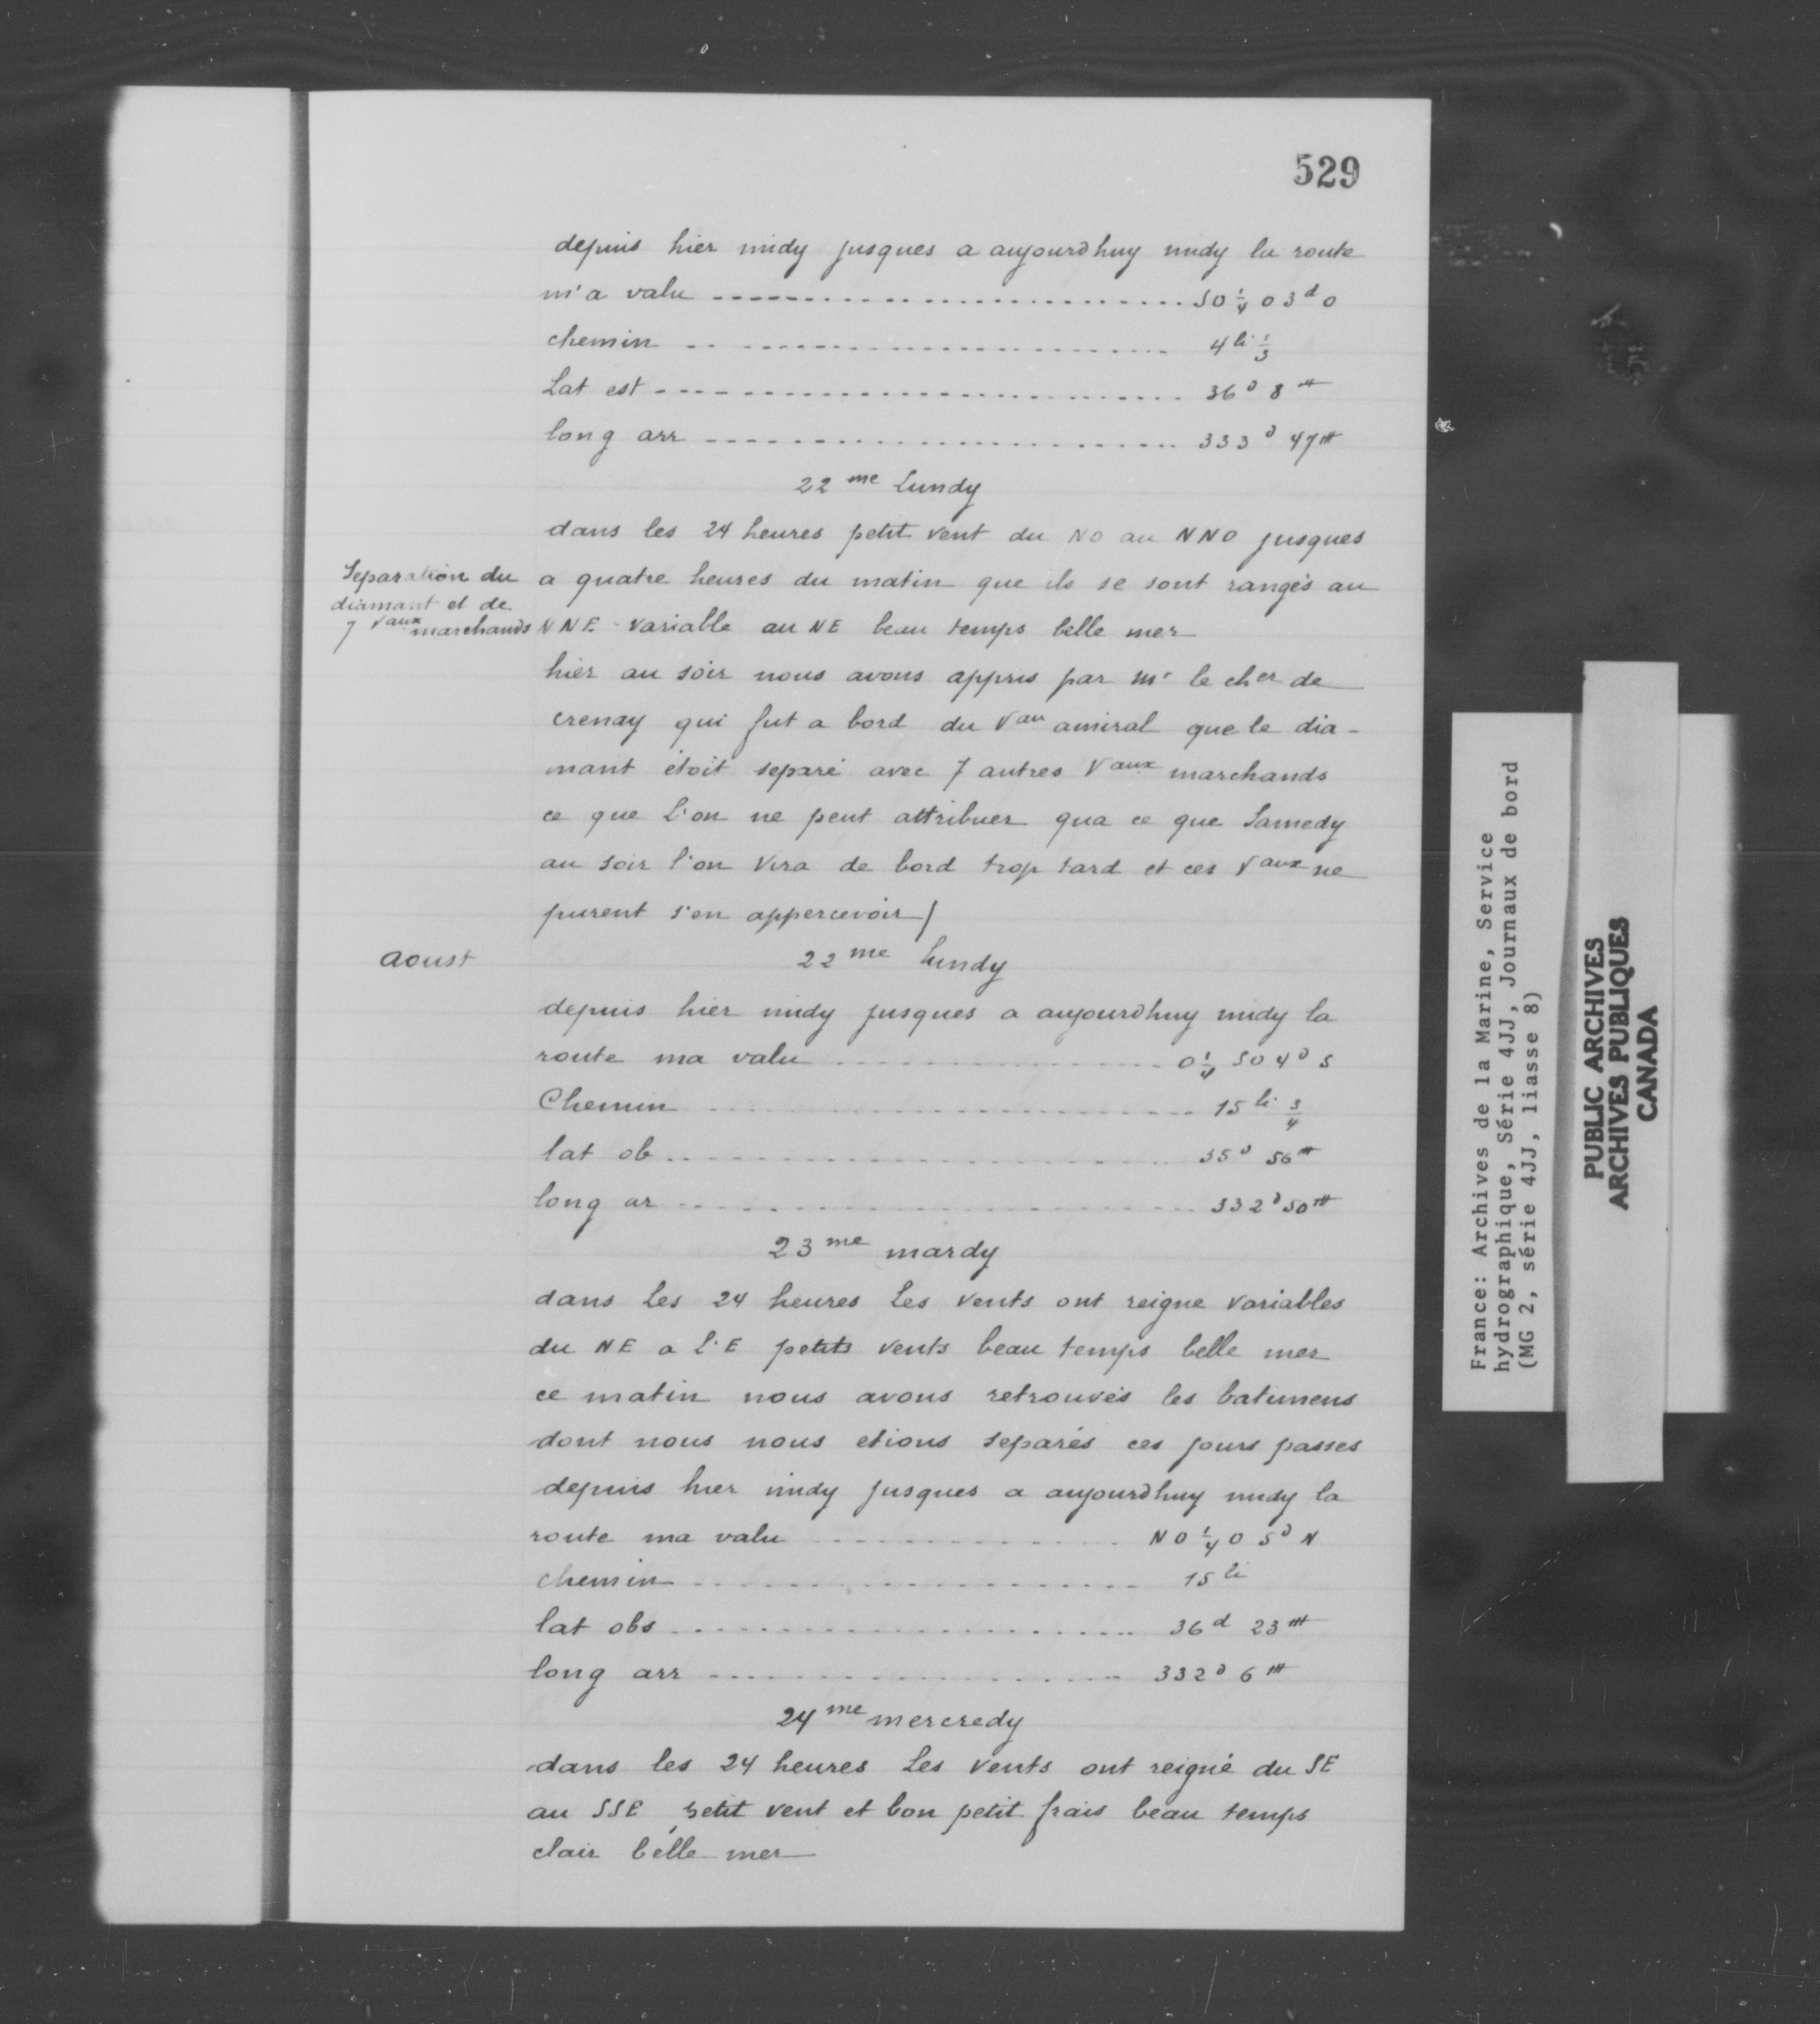 529
depuis hier midy jusques a aujourdhuy midy la route
m'a valu ........................ SO 1/4 O 3d O
chemin ........................ 4li 1/3
Lat est ........................ 36d 8m
long arr ........................ 333d 47m
22me Lundy
dans les 24 heures petit vent du NO au NNO jusques
Separation du
diamant et de
7 Vaux marchands
a quatre heures du matin que ils se sont rangés au
NNE variable au NE beau temps belle mer
hier au soir nous avons appris par Mr le cher de
crenay qui fut a bord du Vau amiral que le dia-
mant étoit separé avec 7 autres Vaux marchands
ce que L'on ne peut attribuer qua ce que Samedy
au soir l'on vira de bord trop tard et ces Vaux ne
purent s'en appercevoir /
aoust
22me Lundy
depuis hier midy jusques a aujourdhuy midy la
route ma valu ........................ O 1/4 SO 4d S
Chemin ........................ 15li 3/4
lat ob ........................ 35d 56m
long ar ........................ 332d 50m
23me mardy
dans Les 24 heures Les vents ont reigne variables
du NE a L'E petits vents beau temps belle mer
ce matin nous avons retrouvés les batimens
dont nous nous etions separés ces jours passes
depuis hier midy jusques a aujourdhuy midy la
route ma valu ........................ NO 1/4 O 5d N
chemin ........................ 15li
lat obs ........................ 36d 23m
long arr ........................ 332d 6m
24me mercredy
dans les 24 heures Les vents ont reigné du SE
au SSE petit vent et bon petit frais beau temps
clair belle mer
France: Archives de la Marine, Service
hydrographique, Série 4JJ, Journaux de bord
(MG 2, série 4JJ, liasse 8)
PUBLIC ARCHIVES
ARCHIVES PUBLIQUES
CANADA